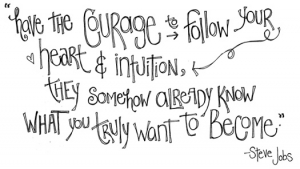 "have the Courage to follow your
heart & intuition,
they somehow already know
what you truly want to Become."
-Steve Jobs